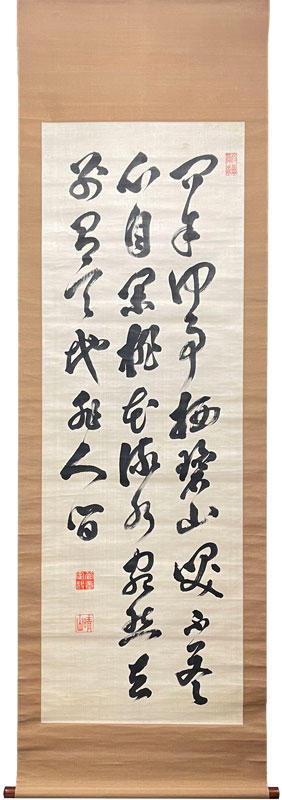 問余何事栖碧山笑不答
心自閑桃花流水窅然去
別有天地非人間